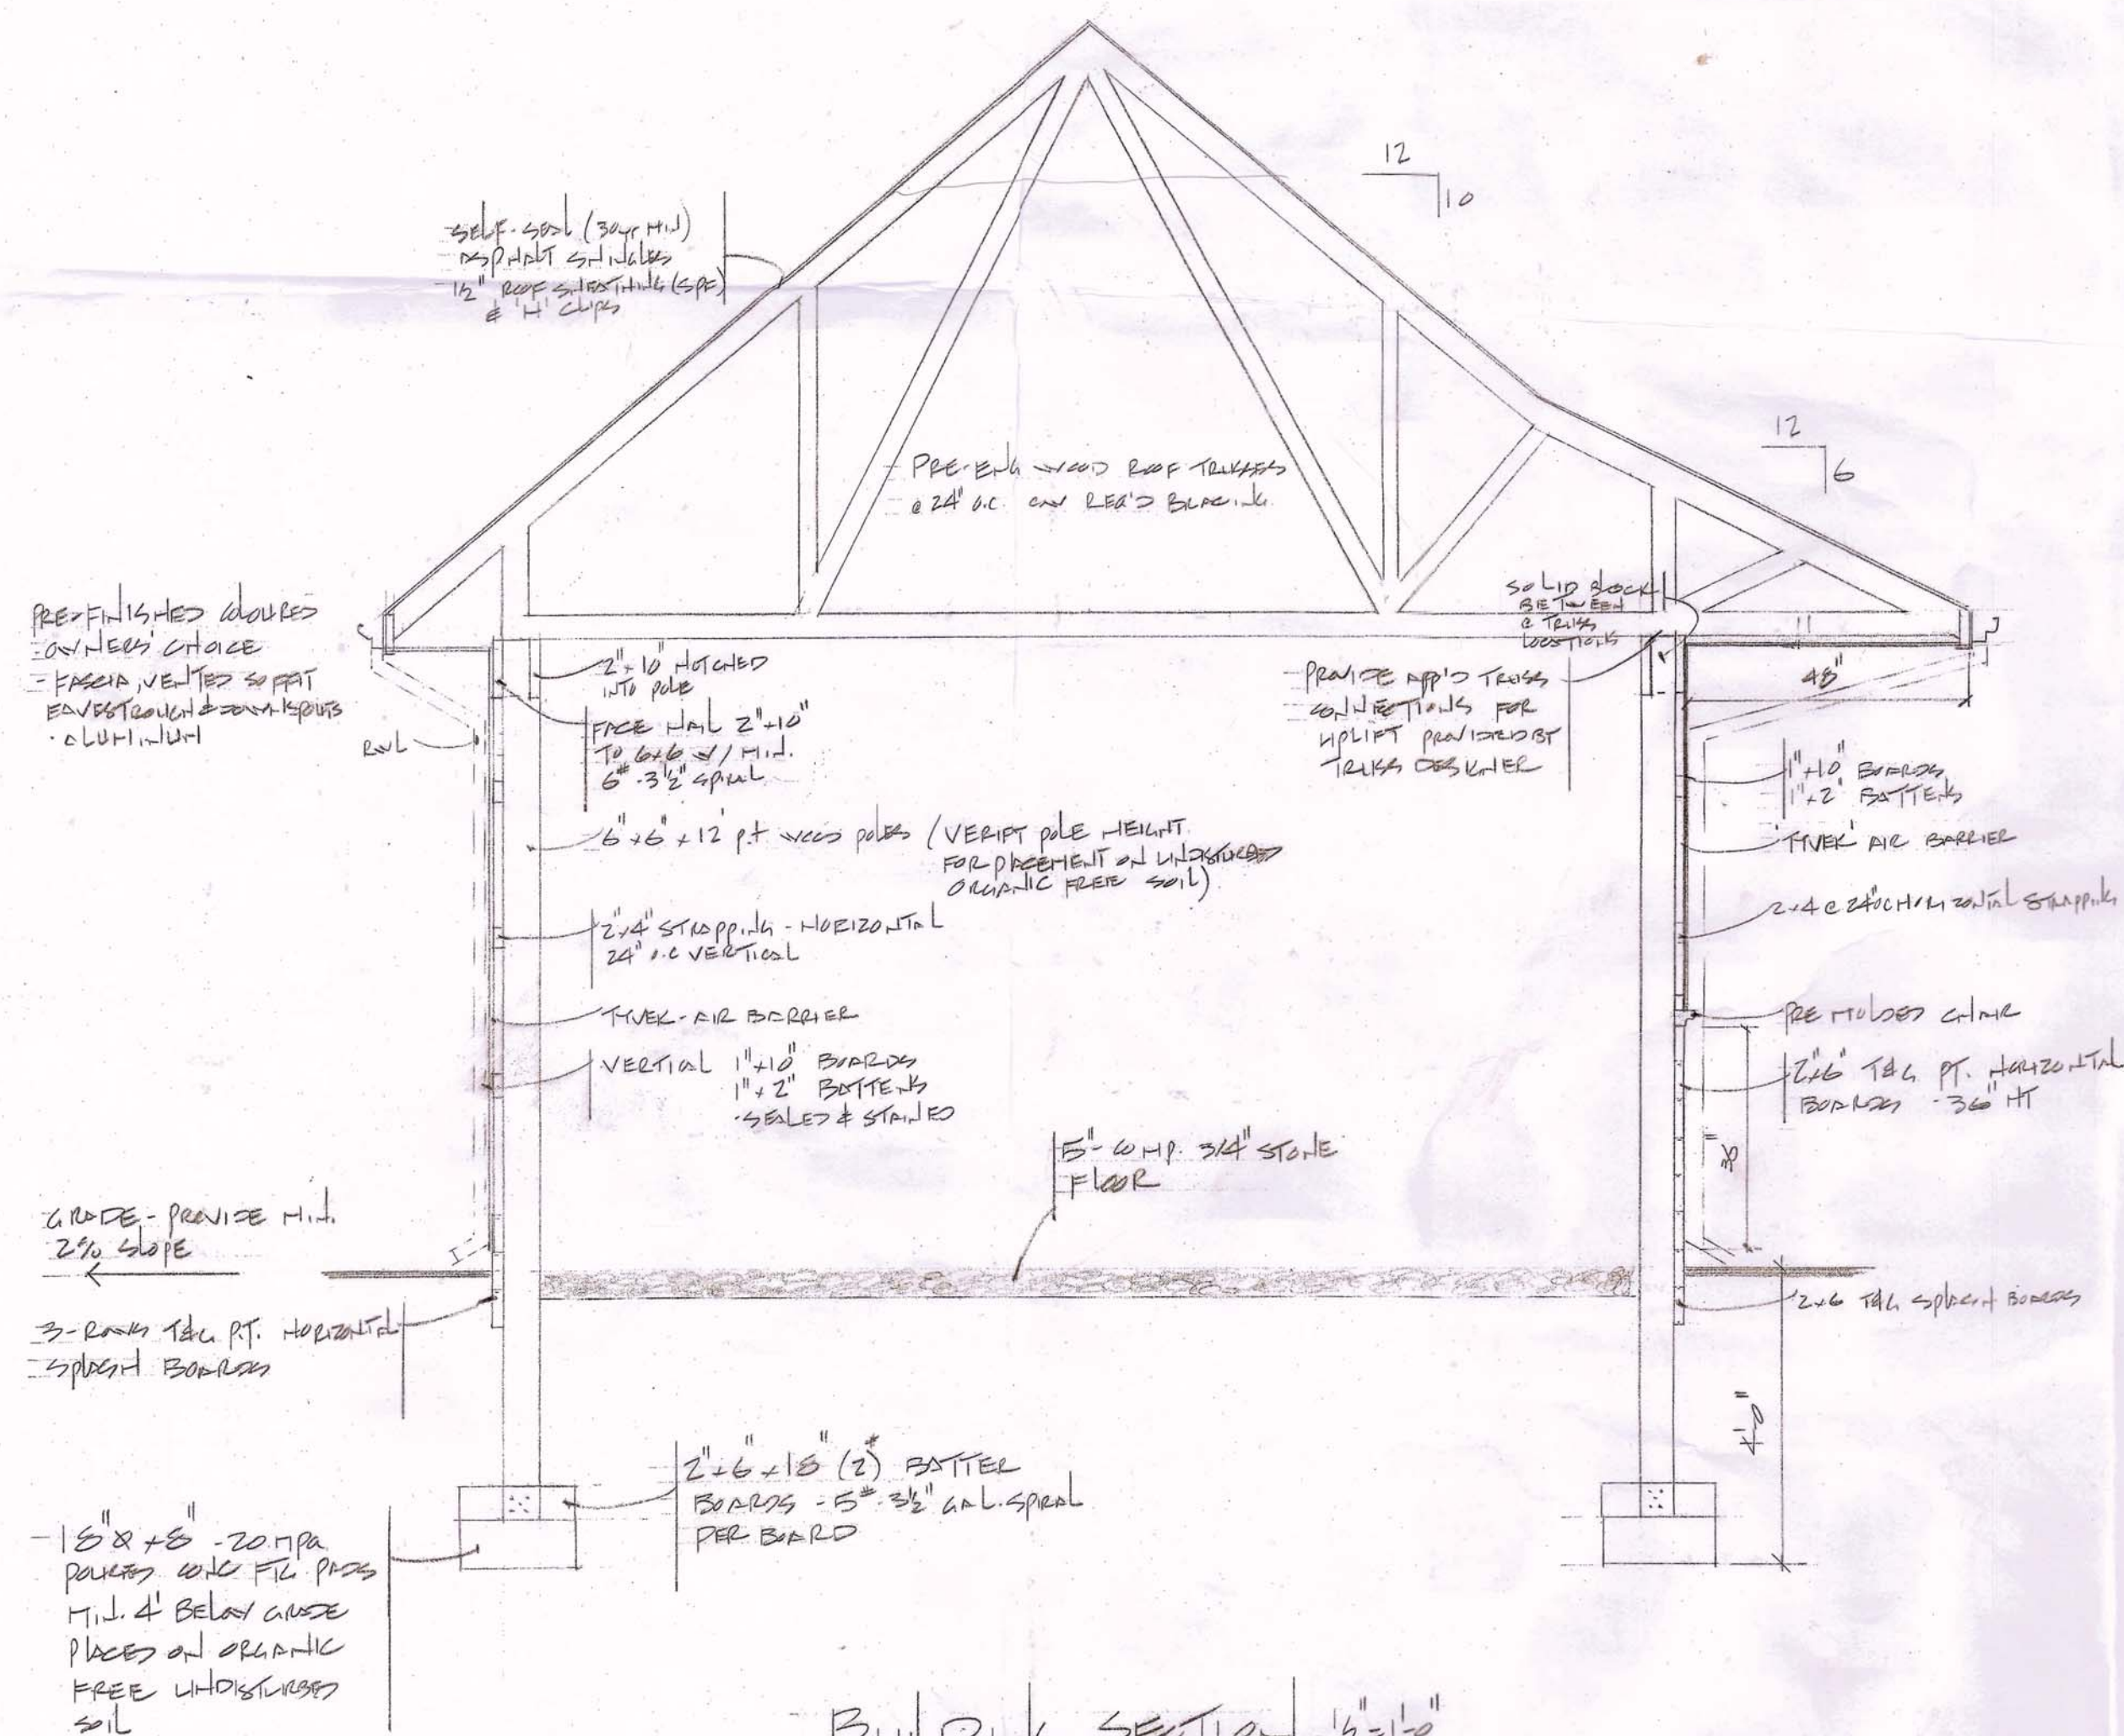 12
10
SELF-SEAL (30yr MIN)
ASPHALT SHINGLES
1/2" ROOF SHEATHING (SPF)
& 'H' CLIPS
12
6
PRE-ENG WOOD ROOF TRUSSES
@ 24" O.C. C/W REQ'D BRACING
PRE-FINISHED COLOURED
OWNERS' CHOICE
- FASCIA, VENTED SOFFIT
EAVESTROUGH & DOWNSPOUTS
- ALUMINUM
RWL
2"x10" NOTCHED
INTO POLE
FACE NAIL 2"x10"
TO 6x6 W/ MIN.
6# - 3 1/2" SPIRAL
SOLID BLOCK
BETWEEN
@ TRUSS
LOCATIONS
PROVIDE APP'D TRUSS
CONNECTIONS FOR
UPLIFT PROVIDED BY
TRUSS DESIGNER
48"
1"x10" BOARDS
1"x2" BATTENS
'TYVEK' AIR BARRIER
6"x6"x12' P.T WOOD POLES (VERIFY POLE HEIGHT
FOR PLACEMENT ON UNDISTURBED
ORGANIC FREE SOIL)
2"x4" STRAPPING - HORIZONTAL
24" O.C VERTICAL
2x4 @ 24" OC HORIZONTAL STRAPPING
TYVEK - AIR BARRIER
VERTICAL 1"x10" BOARDS
1"x2" BATTENS
- SEALED & STAINED
PRE MOLDED CHAIR
2"x6" T&G PT. HORIZONTAL
BOARDS - 36" HT
36"
5" COMP. 3/4" STONE
FLOOR
GRADE - PROVIDE MIN.
2% SLOPE
3-ROWS T&G P.T. HORIZONTAL
SPLASH BOARDS
2x6 T&G SPLASH BOARDS
4'-0"
2"x6"x18" (2)# BATTER
BOARDS - 5# - 3 1/2" GAL. SPIRAL
PER BOARD
- 18"Ø x 8" - 20 MPa
POURED CONC FTG. PADS
MIN. 4' BELOW GRADE
PLACED ON ORGANIC
FREE UNDISTURBED
SOIL
BUILDING SECTION